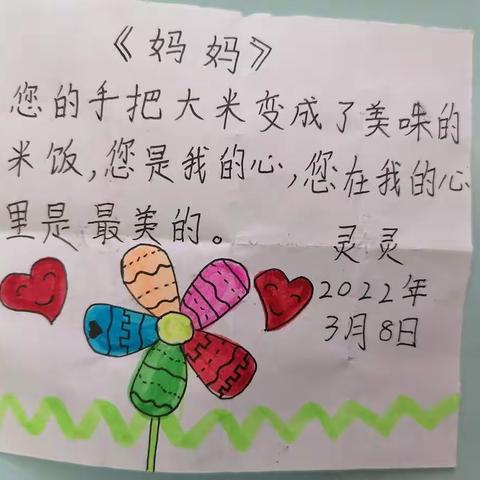 《妈妈》
您的手把大米变成了美味的
米饭,您是我的心,您在我的心
里是最美的。
灵灵
2022年
3月8日